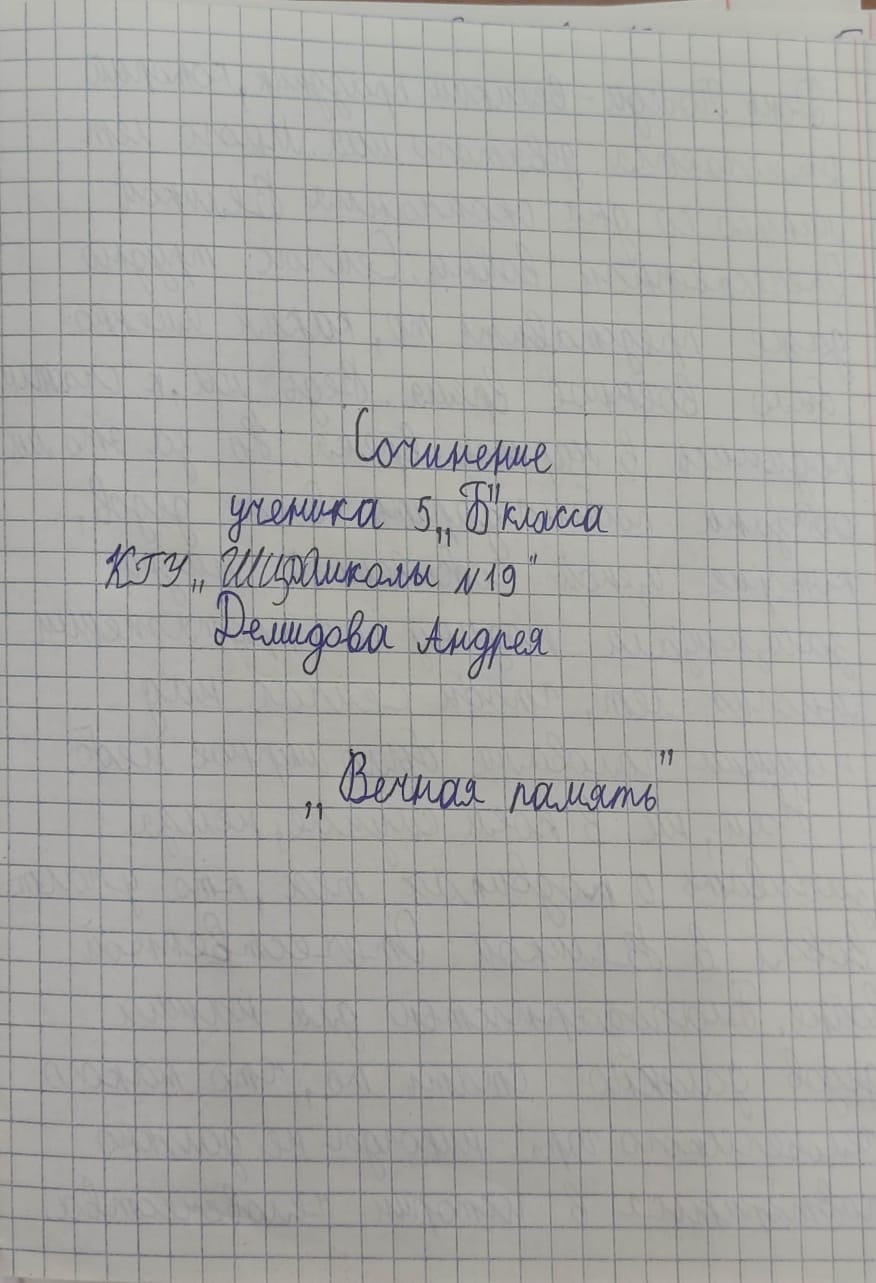 Сочинение
ученика 5 „Б" класса
КГУ „ школы №19"
Демидова Андрея
„Вечная память"